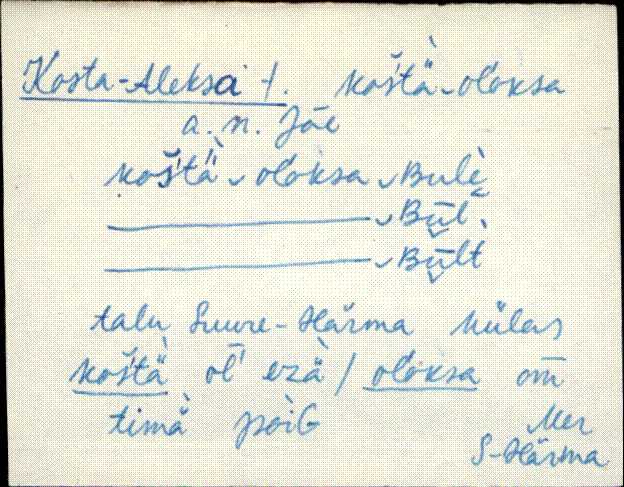 Kosta-Aleksa t. koštä-oloksa
a. n. Jõe
koštä-oloksa-Bulè
-Būl.
-Būlt
talu Suure-Härma külas
koštä ol' ezä / oloksa om̄
timä poiG
Mer
S-Härma